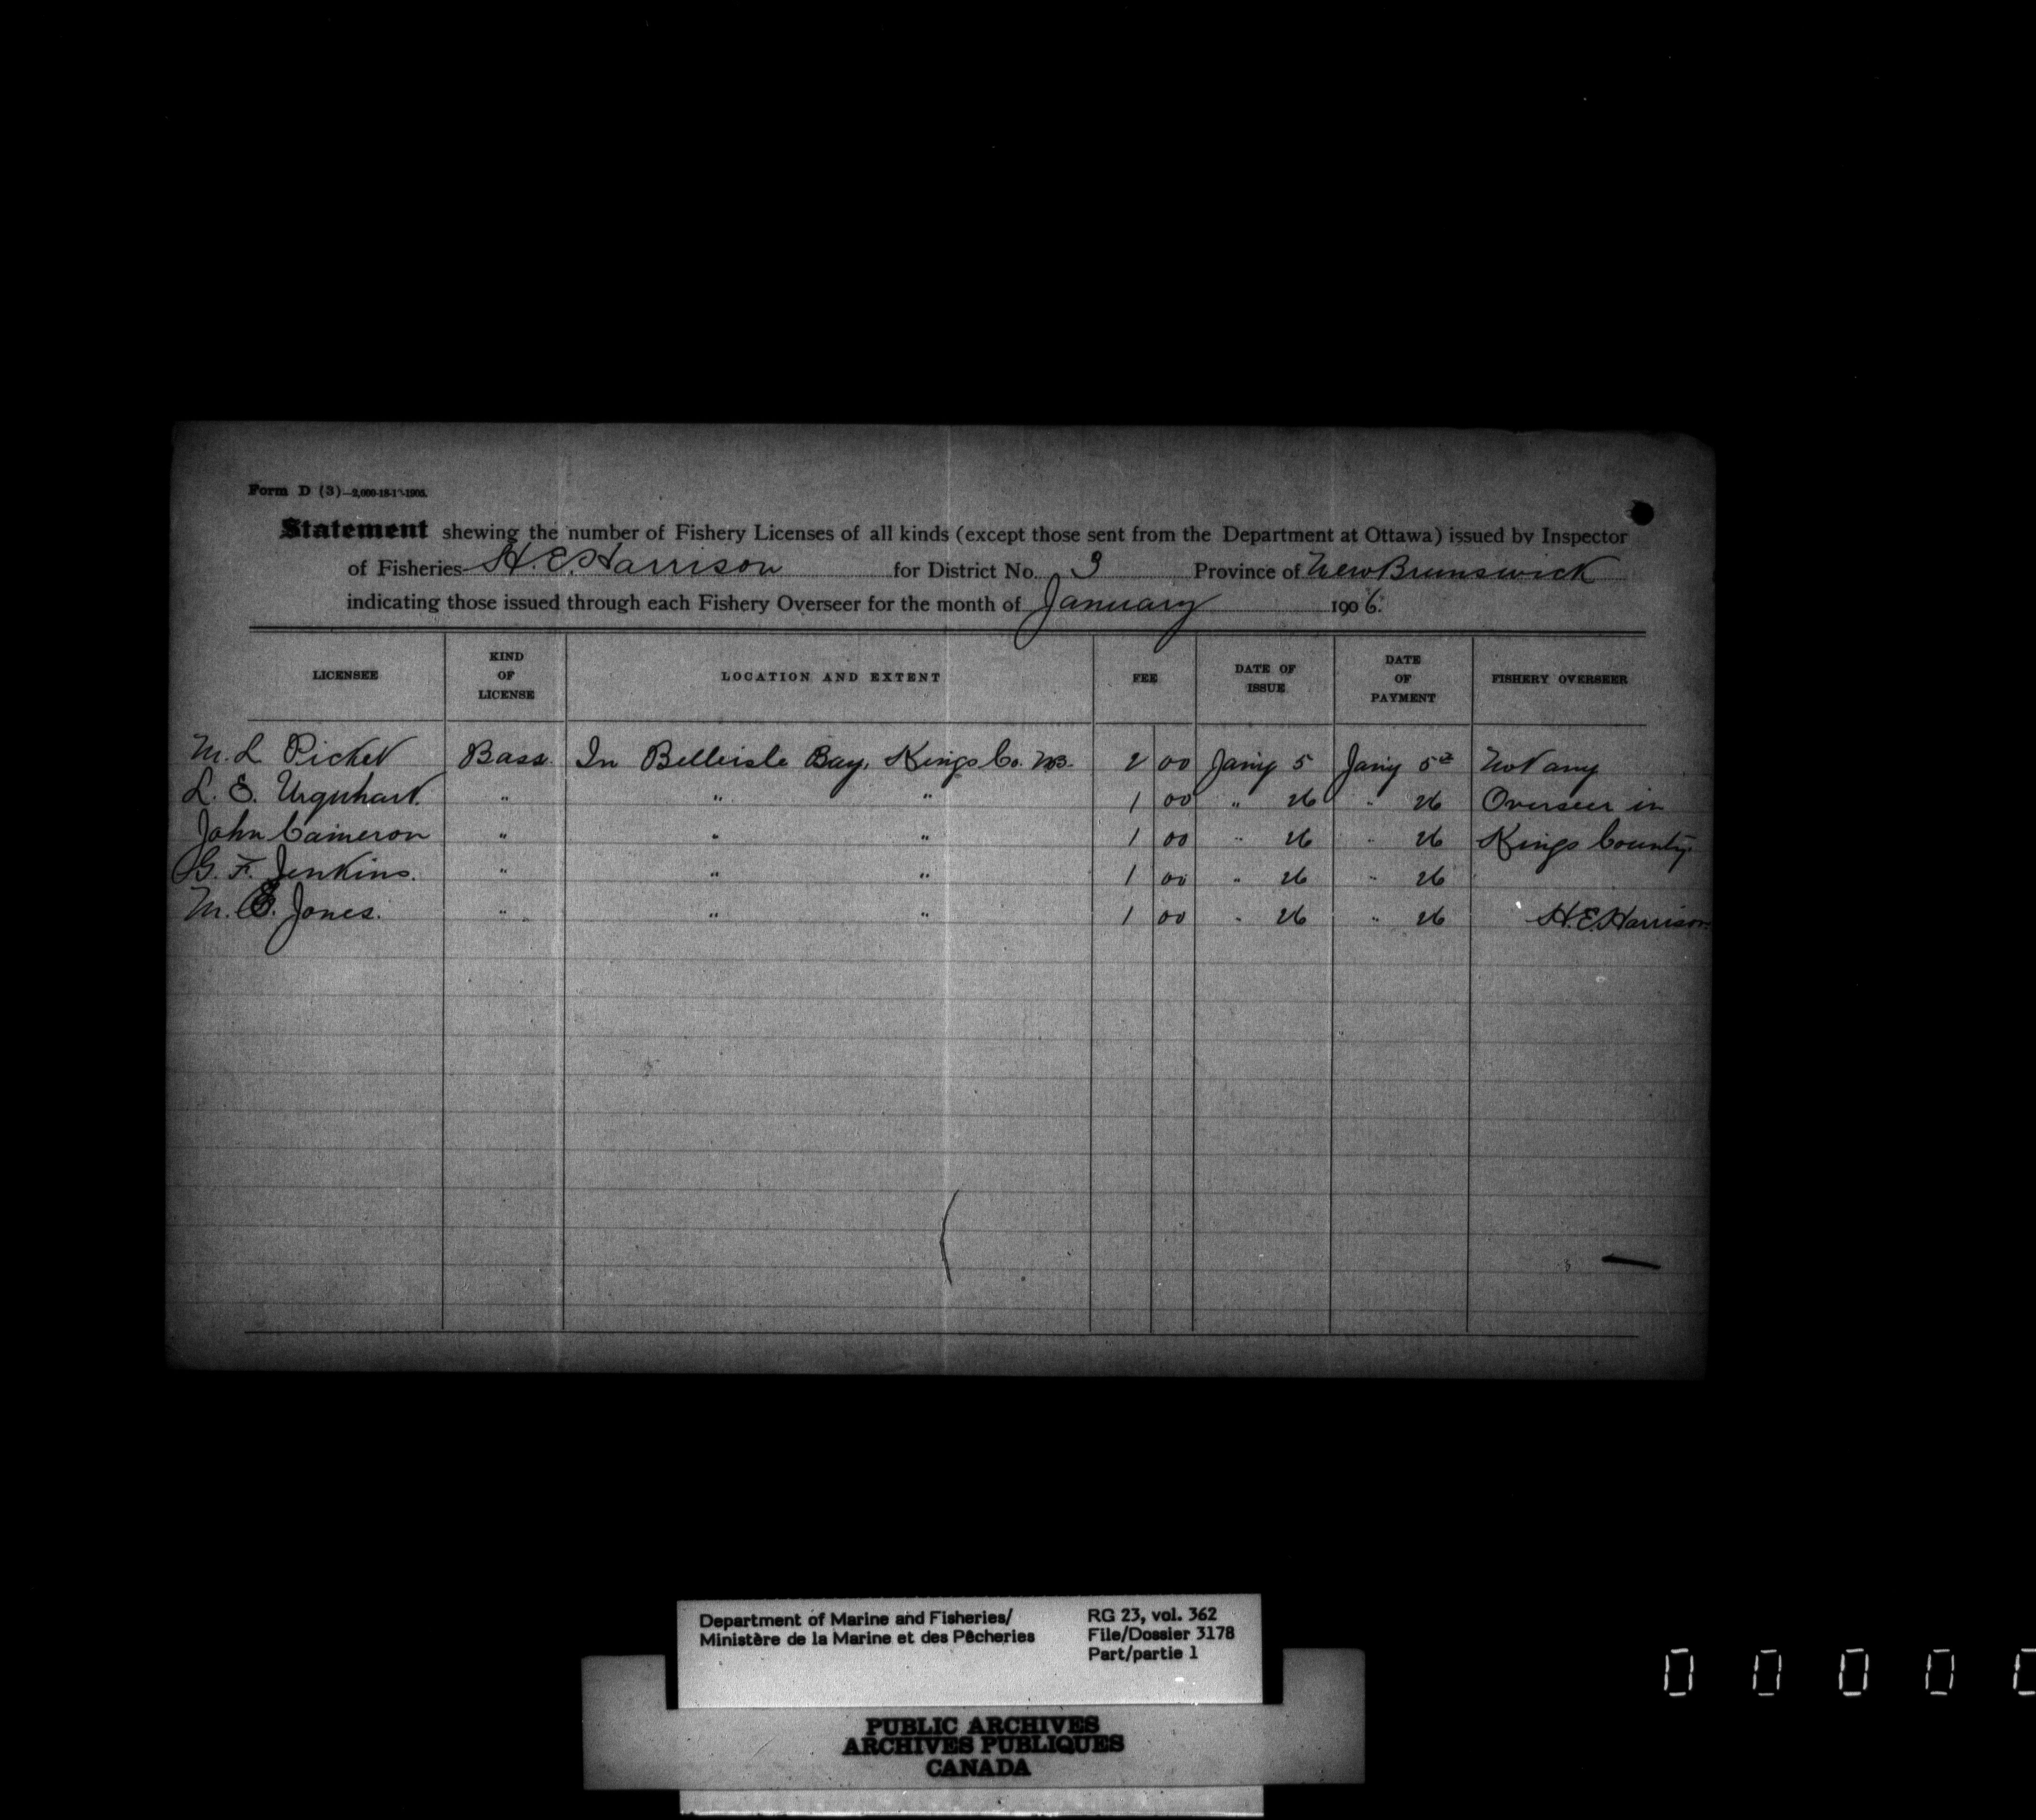 Form D (3)—2,000-18-1-1905.
Statement shewing the number of Fishery Licenses of all kinds (except those sent from the Department at Ottawa) issued by Inspector
of Fisheries H. E. Harrison for District No. 3 Province of New Brunswick
indicating those issued through each Fishery Overseer for the month of January 1906.
LICENSEE KIND OF LICENSE LOCATION AND EXTENT FEE DATE OF ISSUE DATE OF PAYMENT FISHERY OVERSEER
M. L Picket Bass. In Belleisle Bay, Kings Co. NB. 2 00 Jany 5 Jany 5th Not any
L. E. Urquhart. " " " 1 00 " 26 " 26 Overseer in
John Cameron " " " 1 00 " 26 " 26 Kings County.
G. F. Jenkins. " " " 1 00 " 26 " 26
M. E. Jones. " " " 1 00 " 26 " 26 H. E. Harrison
Department of Marine and Fisheries/
Ministère de la Marine et des Pêcheries
RG 23, vol. 362
File/Dossier 3178
Part/partie 1
PUBLIC ARCHIVES
ARCHIVES PUBLIQUES
CANADA
0 0 0 0